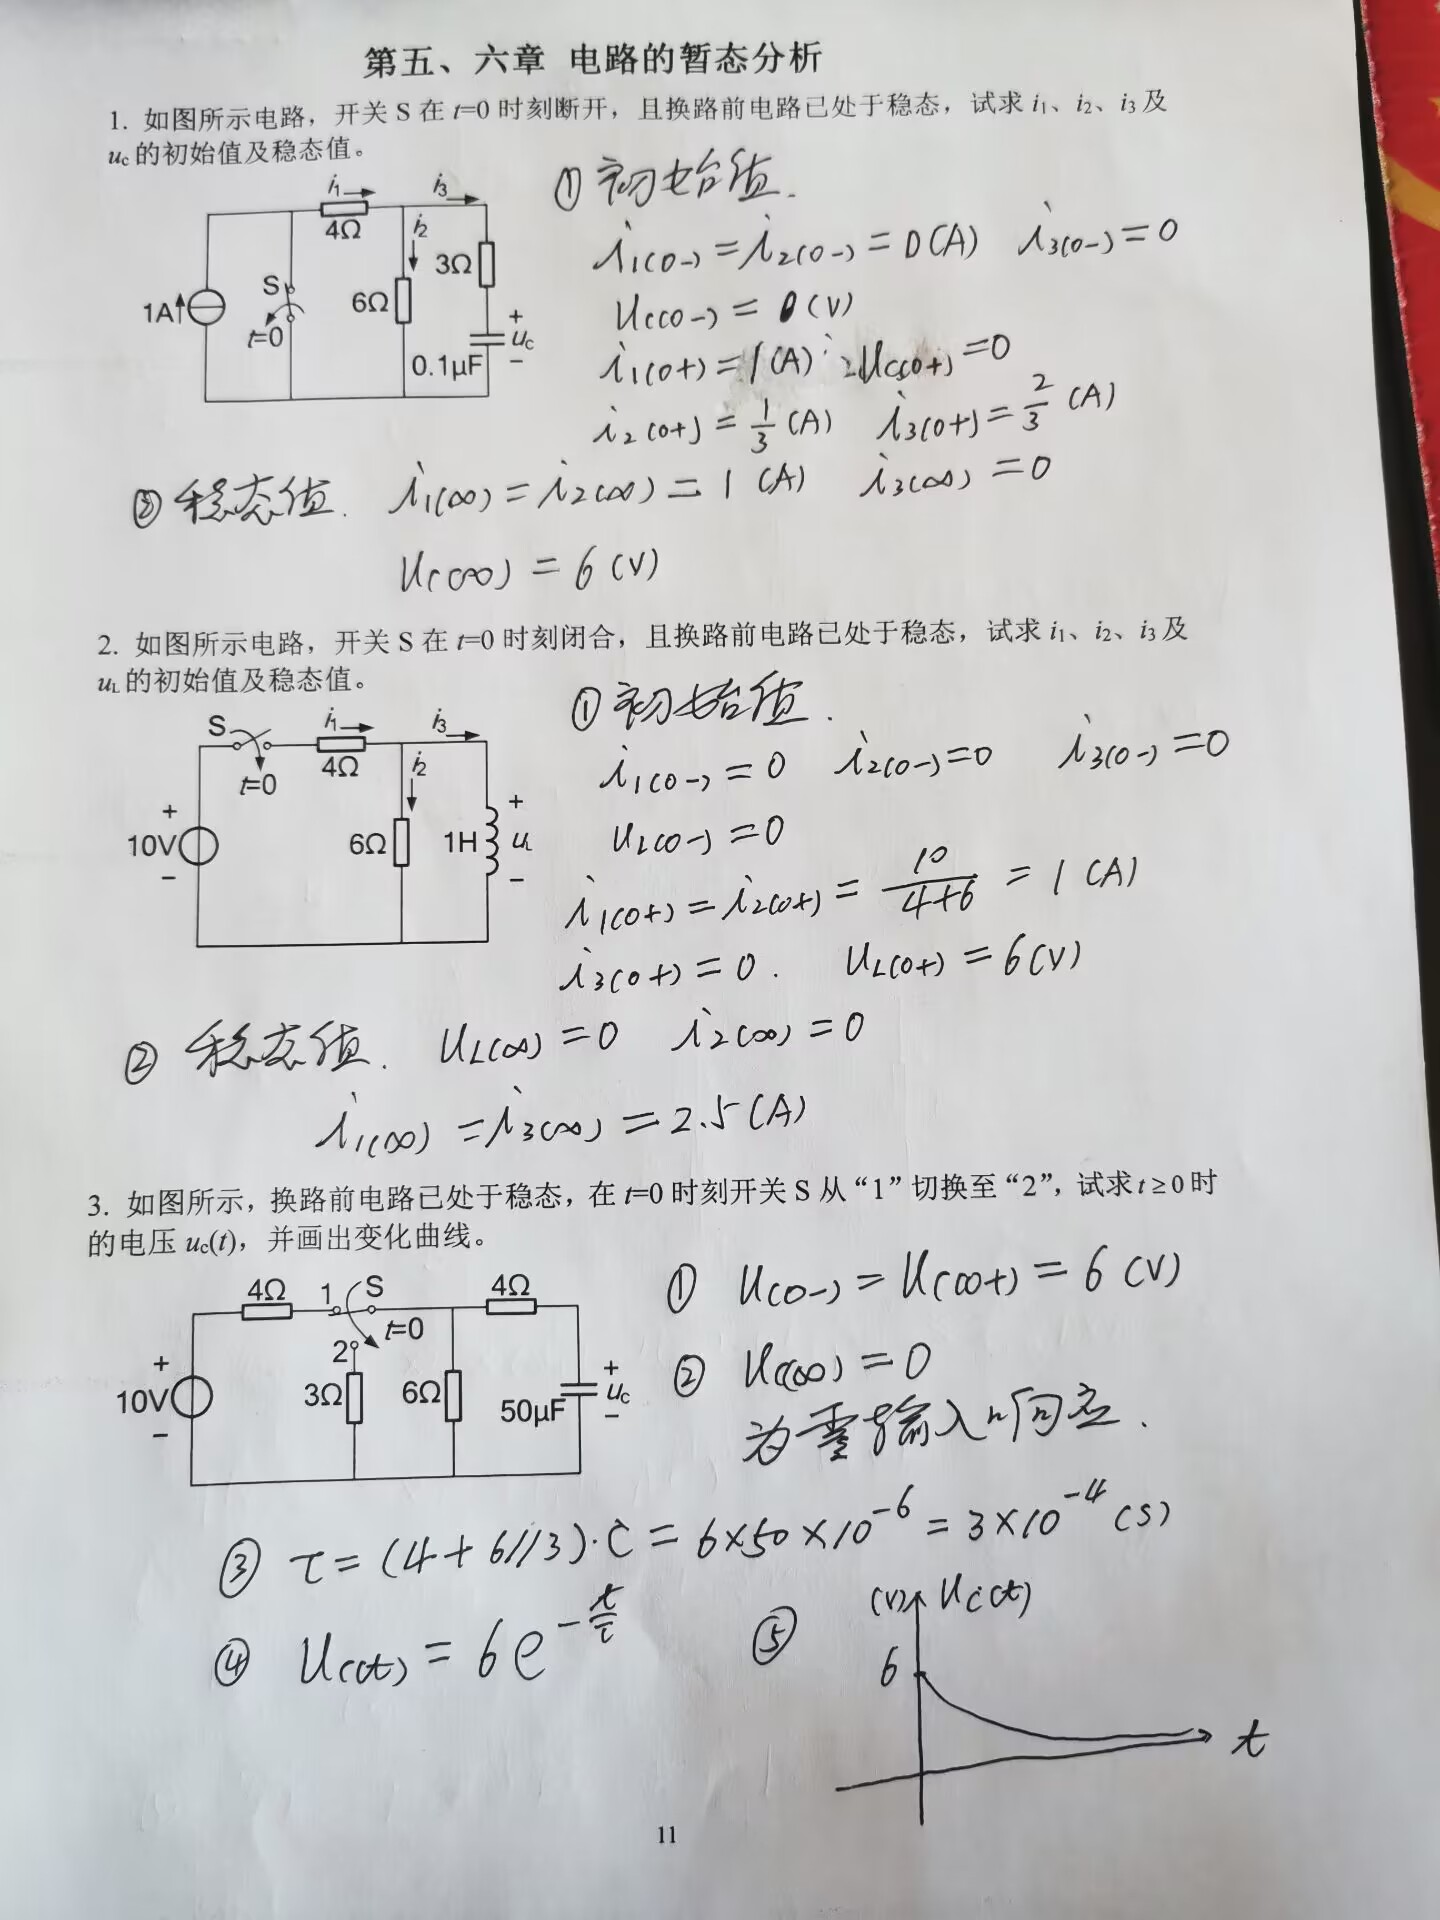 第五、六章 电路的暂态分析
1. 如图所示电路，开关 S 在 t=0 时刻断开，且换路前电路已处于稳态，试求 i₁、i₂、i₃ 及
uc 的初始值及稳态值。
i₁ i₃
4Ω i₂
3Ω
S
1A 6Ω
t=0
+
uc
0.1μF −
① 初始值.
i₁(0-) = i₂(0-) = 0(A) i₃(0-) = 0
uc(0-) = 0(V)
i₁(0+) = 1(A) uc(0+) = 0
i₂(0+) = 1/3 (A) i₃(0+) = 2/3 (A)
② 稳态值. i₁(∞) = i₂(∞) = 1 (A) i₃(∞) = 0
uc(∞) = 6(V)
2. 如图所示电路，开关 S 在 t=0 时刻闭合，且换路前电路已处于稳态，试求 i₁、i₂、i₃ 及
uL 的初始值及稳态值。
S i₁ i₃
t=0 4Ω i₂
+ +
10V 6Ω 1H uL
− −
① 初始值.
i₁(0-) = 0 i₂(0-) = 0 i₃(0-) = 0
uL(0-) = 0
i₁(0+) = i₂(0+) = 10/(4+6) = 1 (A)
i₃(0+) = 0. uL(0+) = 6(V)
② 稳态值. uL(∞) = 0 i₂(∞) = 0
i₁(∞) = i₃(∞) = 2.5(A)
3. 如图所示，换路前电路已处于稳态，在 t=0 时刻开关 S 从“1”切换至“2”，试求 t ≥ 0 时
的电压 uc(t)，并画出变化曲线。
4Ω 1 S 4Ω
t=0
2
+ +
10V 3Ω 6Ω 50μF uc
− −
① u(0-) = uc(0+) = 6(V)
② uc(∞) = 0
为零输入响应.
③ τ = (4+6//3)·C = 6×50×10⁻⁶ = 3×10⁻⁴(S)
④ uc(t) = 6e^(-t/τ)
⑤ (V) uc(t)
6
t
11